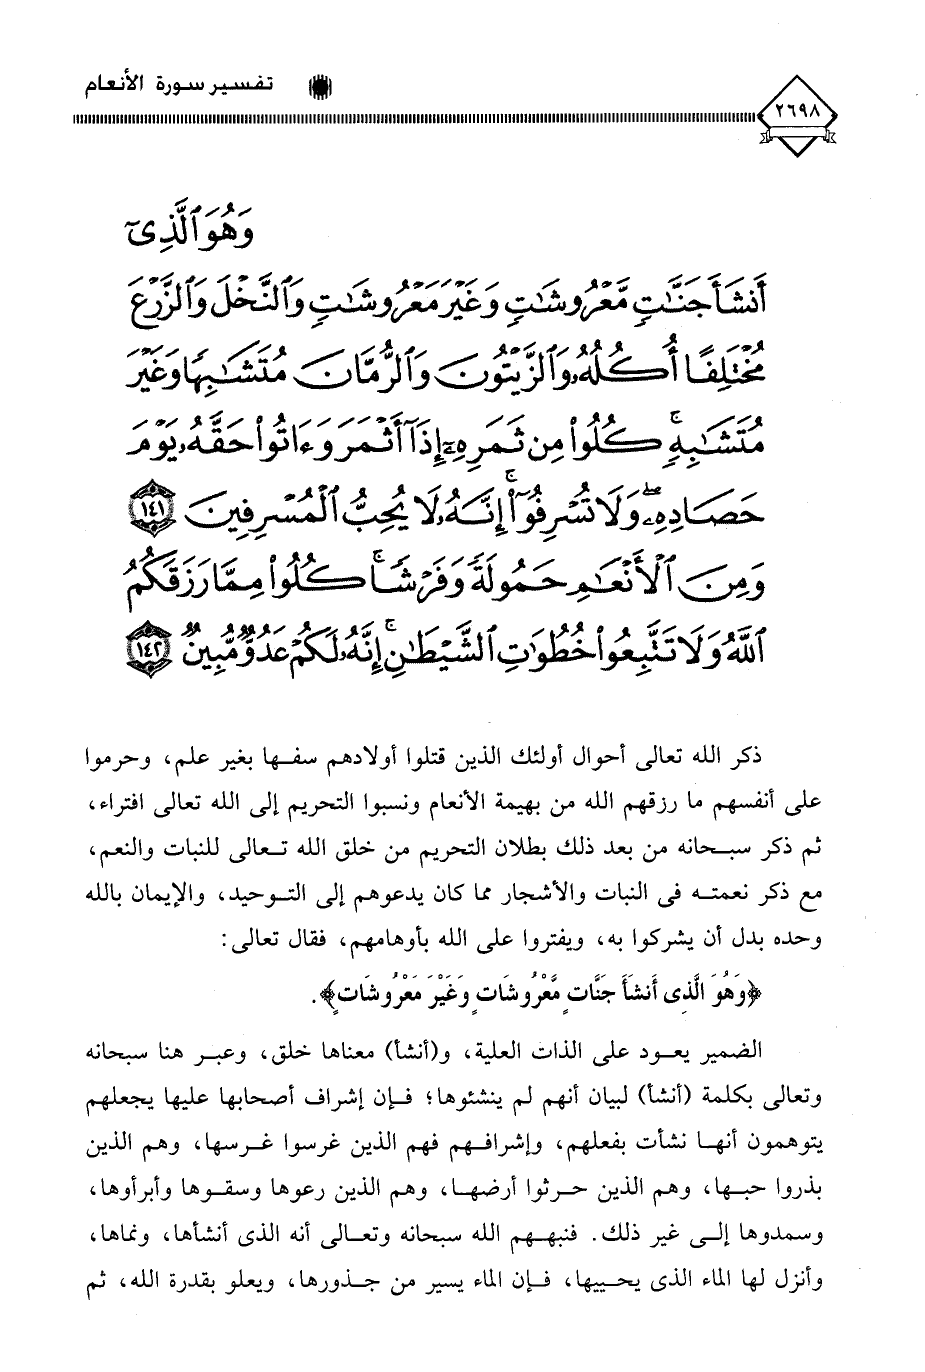 ٢٦٩٨ تفسير سورة الأنعام
وَهُوَ ٱلَّذِىٓ
أَنشَأَ جَنَّـٰتٍ مَّعْرُوشَـٰتٍ وَغَيْرَ مَعْرُوشَـٰتٍ وَٱلنَّخْلَ وَٱلزَّرْعَ
مُخْتَلِفًا أُكُلُهُۥ وَٱلزَّيْتُونَ وَٱلرُّمَّانَ مُتَشَـٰبِهًا وَغَيْرَ
مُتَشَـٰبِهٍ ۚ كُلُوا۟ مِن ثَمَرِهِۦٓ إِذَآ أَثْمَرَ وَءَاتُوا۟ حَقَّهُۥ يَوْمَ
حَصَادِهِۦ ۖ وَلَا تُسْرِفُوٓا۟ ۚ إِنَّهُۥ لَا يُحِبُّ ٱلْمُسْرِفِينَ ١٤١
وَمِنَ ٱلْأَنْعَـٰمِ حَمُولَةً وَفَرْشًا ۚ كُلُوا۟ مِمَّا رَزَقَكُمُ
ٱللَّهُ وَلَا تَتَّبِعُوا۟ خُطُوَٰتِ ٱلشَّيْطَـٰنِ ۚ إِنَّهُۥ لَكُمْ عَدُوٌّ مُّبِينٌ ١٤٢
ذكر الله تعالى أحوال أولئك الذين قتلوا أولادهم سفها بغير علم، وحرموا
على أنفسهم ما رزقهم الله من بهيمة الأنعام ونسبوا التحريم إلى الله تعالى افتراء،
ثم ذكر سبحانه من بعد ذلك بطلان التحريم من خلق الله تعالى للنبات والنعم،
مع ذكر نعمته فى النبات والأشجار مما كان يدعوهم إلى التوحيد، والإيمان بالله
وحده بدل أن يشركوا به، ويفتروا على الله بأوهامهم، فقال تعالى:
﴿وَهُوَ الَّذِى أَنشَأَ جَنَّاتٍ مَّعْرُوشَاتٍ وَغَيْرَ مَعْرُوشَاتٍ﴾.
الضمير يعود على الذات العلية، و(أنشأ) معناها خلق، وعبر هنا سبحانه
وتعالى بكلمة (أنشأ) لبيان أنهم لم ينشئوها؛ فإن إشراف أصحابها عليها يجعلهم
يتوهمون أنها نشأت بفعلهم، وإشرافهم فهم الذين غرسوا غرسها، وهم الذين
بذروا حبها، وهم الذين حرثوا أرضها، وهم الذين رعوها وسقوها وأبرأوها،
وسمدوها إلى غير ذلك. فنبههم الله سبحانه وتعالى أنه الذى أنشأها، ونماها،
وأنزل لها الماء الذى يحييها، فإن الماء يسير من جذورها، ويعلو بقدرة الله، ثم